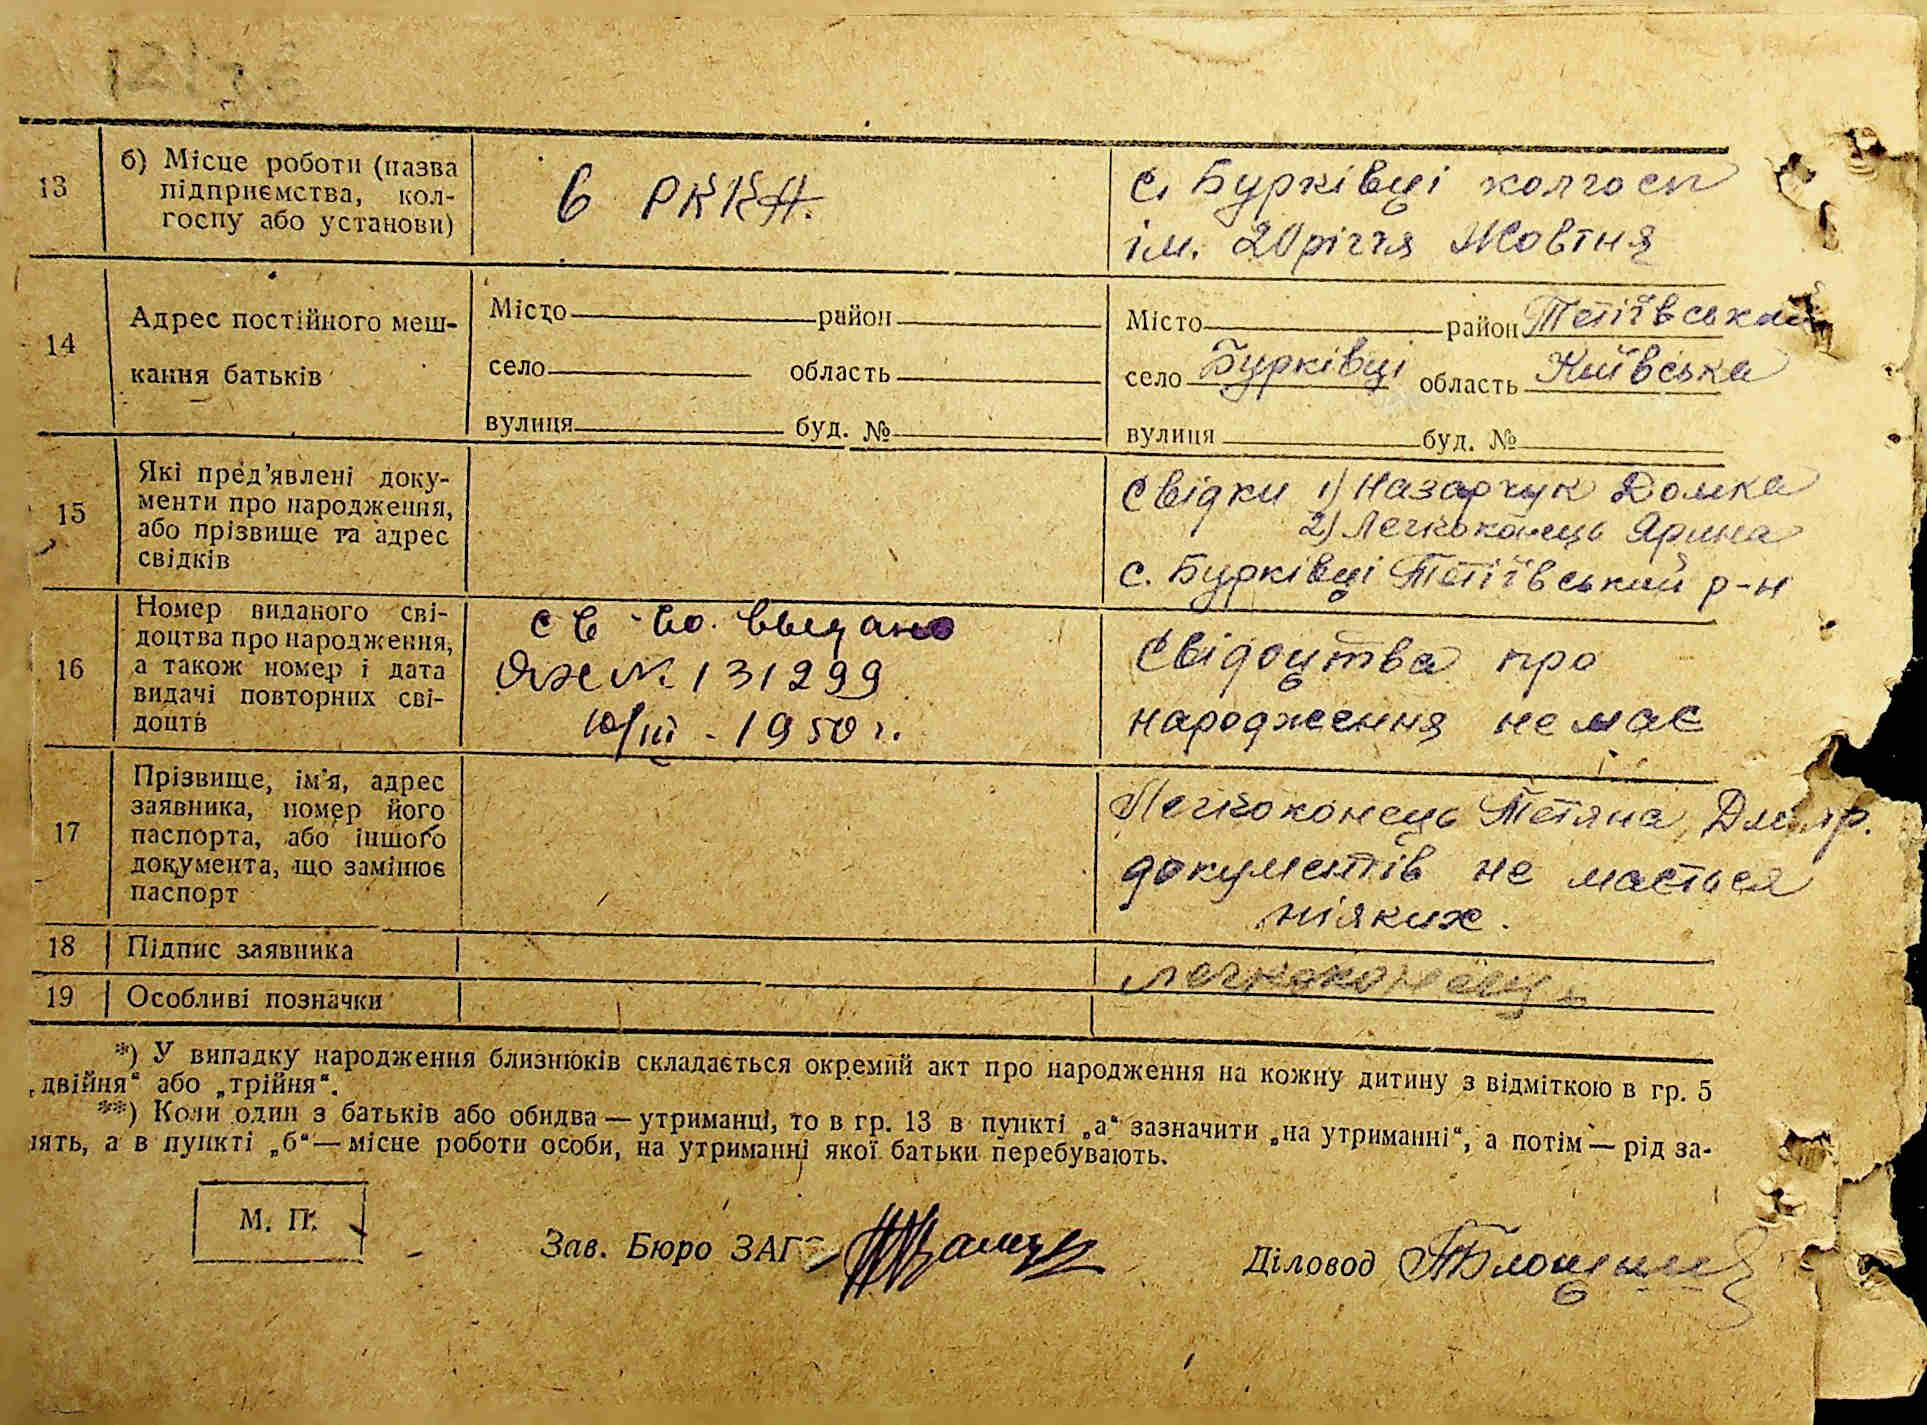 13
б) Місце роботи (назва
підприємства, кол-
госпу або установи)
в РККА.
с. Бурківці колгосп
ім. 20 річчя Жовтня
14
Адрес постійного меш-
кання батьків
Місто район
село область
вулиця буд. №
Місто район Тетіївський
село Бурківці область Київська
вулиця буд. №
15
Які пред'явлені доку-
менти про народження,
або прізвище та адрес
свідків
Свідки 1) Назарчук Домка
2) Легкоконець Ярина
с. Бурківці Тетіївський р-н
16
Номер виданого сві-
доцтва про народження,
а також номер і дата
видачі повторних сві-
доцтв
св-во. выдано
ЯЖ № 131299
10/III - 1950 г.
Свідоцтва про
народження не має
17
Прізвище, ім'я, адрес
заявника, номер його
паспорта, або іншого
документа, що замінює
паспорт
Легкоконець Тетяна
документів не мається
ніяких.
18
Підпис заявника
Легкоконець
19
Особливі позначки
*) У випадку народження близнюків складається окремий акт про народження на кожну дитину з відміткою в гр. 5
„двійня“ або „трійня“.
**) Коли один з батьків або обидва — утриманці, то в гр. 13 в пункті „а“ зазначити „на утриманні“, а потім — рід за-
нять, а в пункті „б“ — місце роботи особи, на утриманні якої батьки перебувають.
М. П.
Зав. Бюро ЗАГС
Діловод